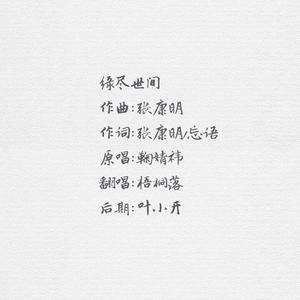 缘尽世间
作曲:张康明
作词:张康明/忘语
原唱:鞠婧祎
翻唱:梧桐落
后期:叶小开